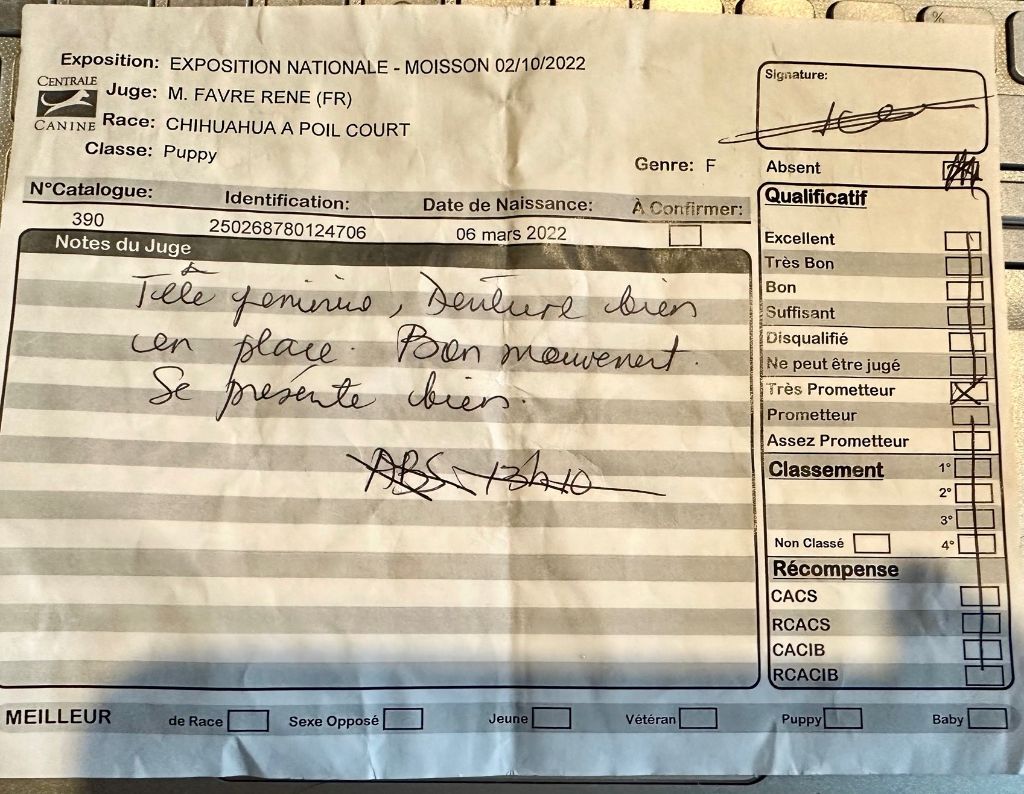 Exposition: EXPOSITION NATIONALE - MOISSON 02/10/2022
CENTRALE
CANINE
Juge: M. FAVRE RENE (FR)
Race: CHIHUAHUA A POIL COURT
Classe: Puppy
Genre: F
Signature:
Absent
N°Catalogue: Identification: Date de Naissance: À Confirmer:
390 250268780124706 06 mars 2022
Notes du Juge
Tête feminine, Denture bien
en place. Bon mouvement.
Se présente bien.
ABS 13h10
Qualificatif
Excellent
Très Bon
Bon
Suffisant
Disqualifié
Ne peut être jugé
Très Prometteur
Prometteur
Assez Prometteur
Classement 1°
2°
3°
Non Classé 4°
Récompense
CACS
RCACS
CACIB
RCACIB
MEILLEUR de Race Sexe Opposé Jeune Vétéran Puppy Baby
%